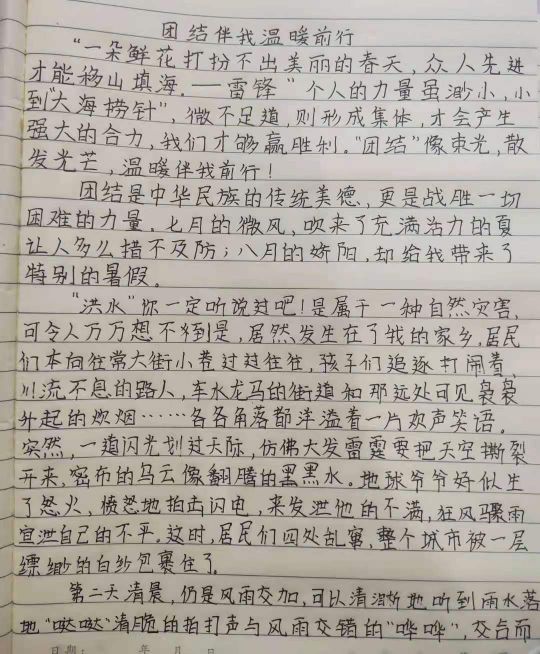 团结伴我温暖前行
“一朵鲜花打扮不出美丽的春天,众人先进
才能移山填海。——雷锋”个人的力量虽渺小,小
到“大海捞针”,微不足道,则形成集体,才会产生
强大的合力,我们才够赢胜利。“团结”像束光,散
发光芒,温暖伴我前行!
团结是中华民族的传统美德,更是战胜一切
困难的力量。七月的微风,吹来了充满活力的夏
让人多么措不及防;八月的娇阳,却给我带来了
特别的暑假。
“洪水”你一定听说过吧!是属于一种自然灾害,
可令人万万想不到是,居然发生在了我的家乡,居民
们本向往常大街小巷过过往往,孩子们追逐打闹着,
川流不息的路人,车水龙马的街道和那远处可见袅袅
升起的炊烟……各各角落都洋溢着一片欢声笑语。
突然,一道闪光划过天际,仿佛大发雷霆要把天空撕裂
开来,密布的乌云像翻腾的黑黑水。地球爷爷好似生
了怒火,愤怒地拍击闪电,来发泄他的不满,狂风骤雨
宣泄自己的不平。这时,居民们四处乱窜,整个城市被一层
缥缈的白纱包裹住了。
第二天清晨,仍是风雨交加,可以清淅地听到雨水落
地“哒哒”清脆的拍打声与风雨交错的“哗哗”,交合而
日期: 年 月 日